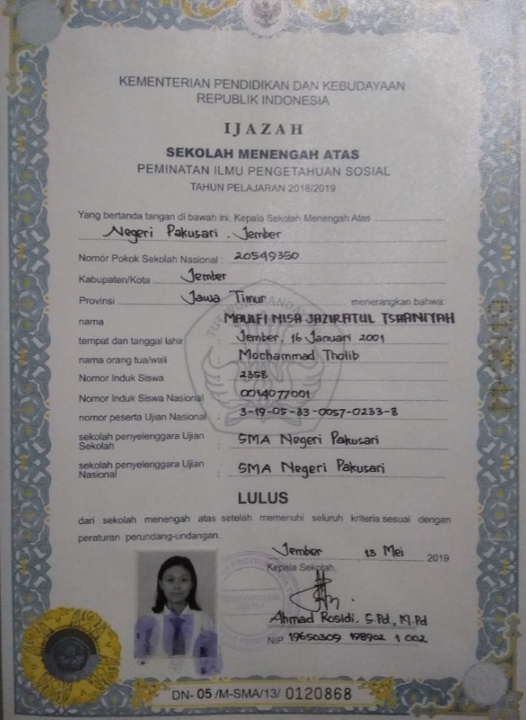 KEMENTERIAN PENDIDIKAN DAN KEBUDAYAAN
REPUBLIK INDONESIA
IJAZAH
SEKOLAH MENENGAH ATAS
PEMINATAN ILMU PENGETAHUAN SOSIAL
TAHUN PELAJARAN 2018/2019
Yang bertanda tangan di bawah ini, Kepala Sekolah Menengah Atas
Negeri Pakusari, Jember
Nomor Pokok Sekolah Nasional : 20549350
Kabupaten/Kota : Jember
Provinsi : Jawa Timur menerangkan bahwa:
nama : MAULFI NISA JAZIRATUL TSBANIYAH
tempat dan tanggal lahir : Jember, 16 Januari 2001
nama orang tua/wali : Mochammad Tholib
Nomor Induk Siswa : 2358
Nomor Induk Siswa Nasional : 0014077001
nomor peserta Ujian Nasional : 3-19-05-33-0057-0233-8
sekolah penyelenggara Ujian Sekolah : SMA Negeri Pakusari
sekolah penyelenggara Ujian Nasional : SMA Negeri Pakusari
LULUS
dari sekolah menengah atas setelah memenuhi seluruh kriteria sesuai dengan
peraturan perundang-undangan.
Jember 13 Mei 2019
Kepala Sekolah,
Ahmad Rosidi. S.Pd, M.Pd
NIP 19650309 198902 1 002
DN- 05 /M-SMA/13/ 0120868